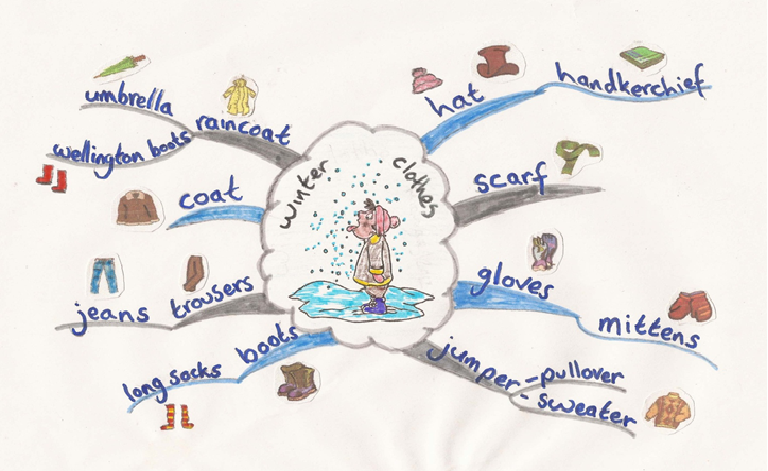 winter clothes
hat
handkerchief
scarf
gloves
mittens
jumper
-pullover
-sweater
boots
long socks
trousers
jeans
coat
raincoat
umbrella
wellington boots